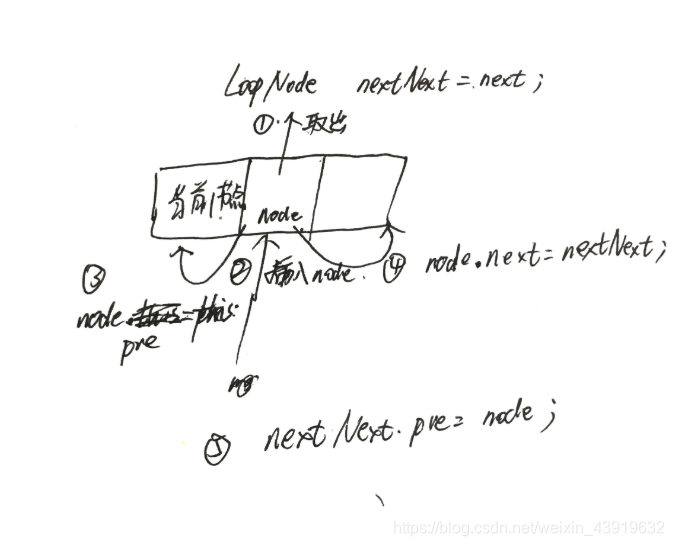 LoopNode nextNext = next;
① 取出
当前节点
node
③
② 插入node.
④ node.next = nextNext;
node. = this.
pre
⑤ nextNext.pre = node;
https://blog.csdn.net/weixin_43919632